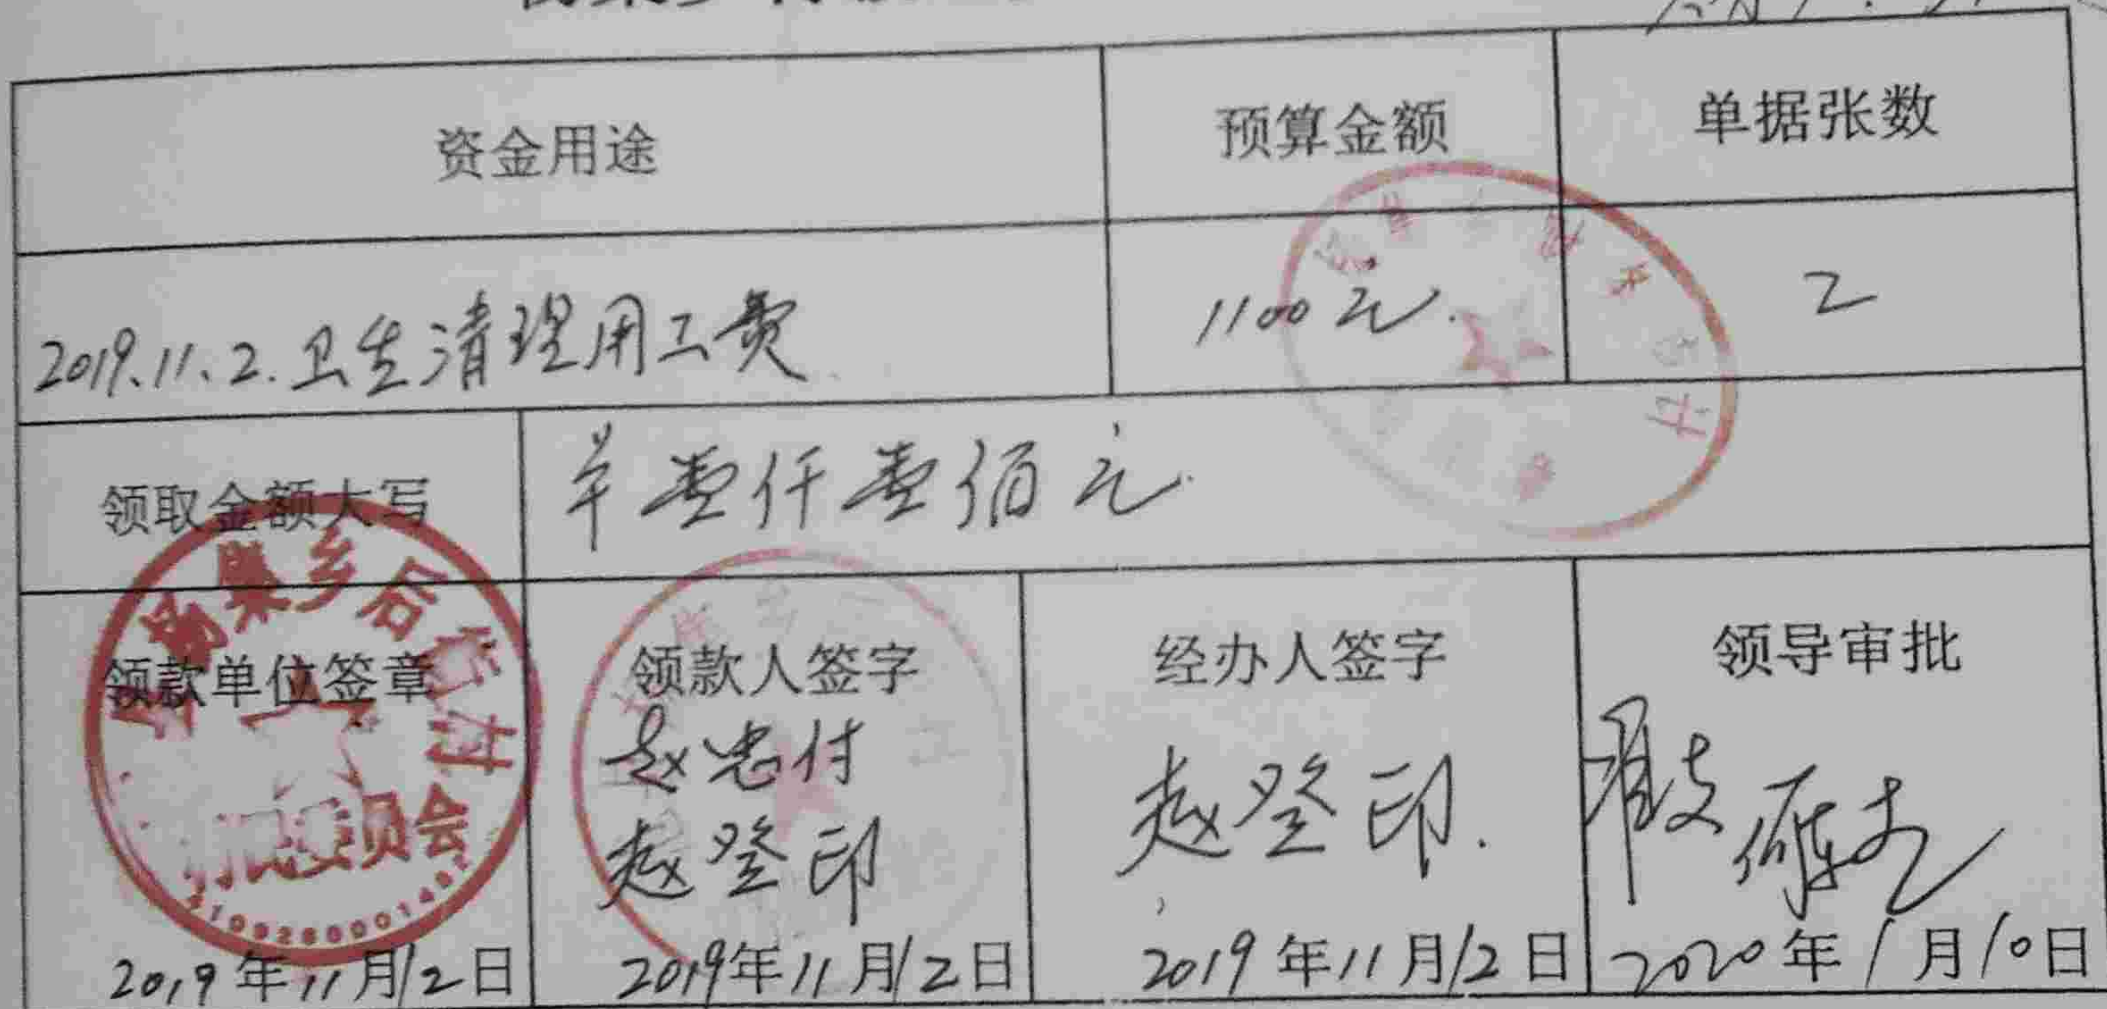 资金用途 预算金额 单据张数
2019.11.2.卫生清理用工费 1100元. 2
领取金额大写 羊壹仟壹佰元.
领款单位签章 领款人签字 经办人签字 领导审批
集乡后
村
村民委员会
赵忠付
赵登印 赵登印.
2019年11月12日 2019年11月12日 2019年11月12日 2020年1月10日